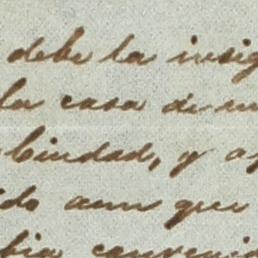 debe la insig
la casa de su
Ciudad, y a
do aun que
bia conveni